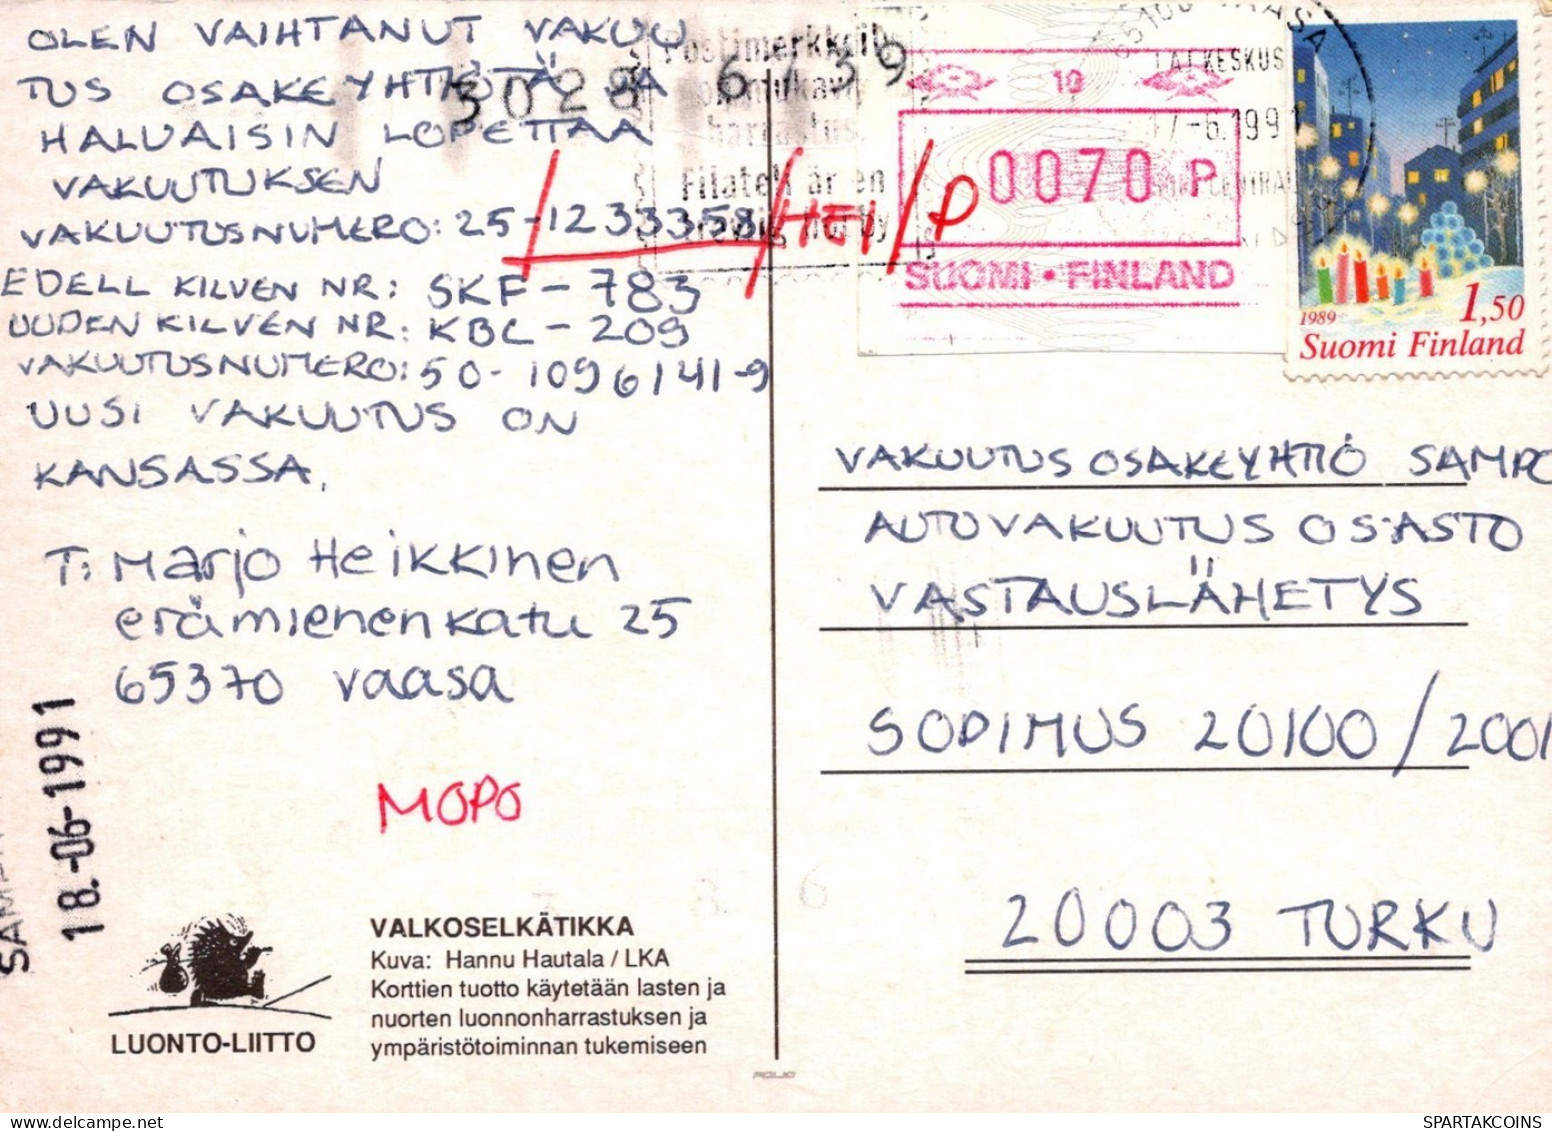 OLEN VAIHTANUT VAKUU
TUS OSAKEYHTIÖTÄ JA
HALUAISIN LOPETTAA
VAKUUTUKSEN
VAKUUTUSNUMERO: 25-1233358
/HEI/P
EDELL KILVEN NR: SKF-783
UUDEN KILVEN NR: KBC-209
VAKUUTUSNUMERO: 50-1096141-9
UUSI VAKUUTUS ON
KANSASSA.
T: Marjo Heikkinen
erämienenkatu 25
65370 vaasa
MOPO
18.-06-1991
VALKOSELKÄTIKKA
Kuva: Hannu Hautala / LKA
Korttien tuotto käytetään lasten ja
nuorten luonnonharrastuksen ja
ympäristötoiminnan tukemiseen
LUONTO-LIITTO
FOLIO
Postimerkkeily
on mukava
harrastus.
Filateli är en
trevlig hobby
10
0070 P
SUOMI • FINLAND
65100 VAASA
17-6.1991
1989
1,50
Suomi Finland
VAKUUTUS OSAKEYHTIÖ SAMPO
AUTOVAKUUTUS OSASTO
VASTAUSLÄHETYS
SOPIMUS 20100/2001
20003 TURKU
SPARTAKCOINS